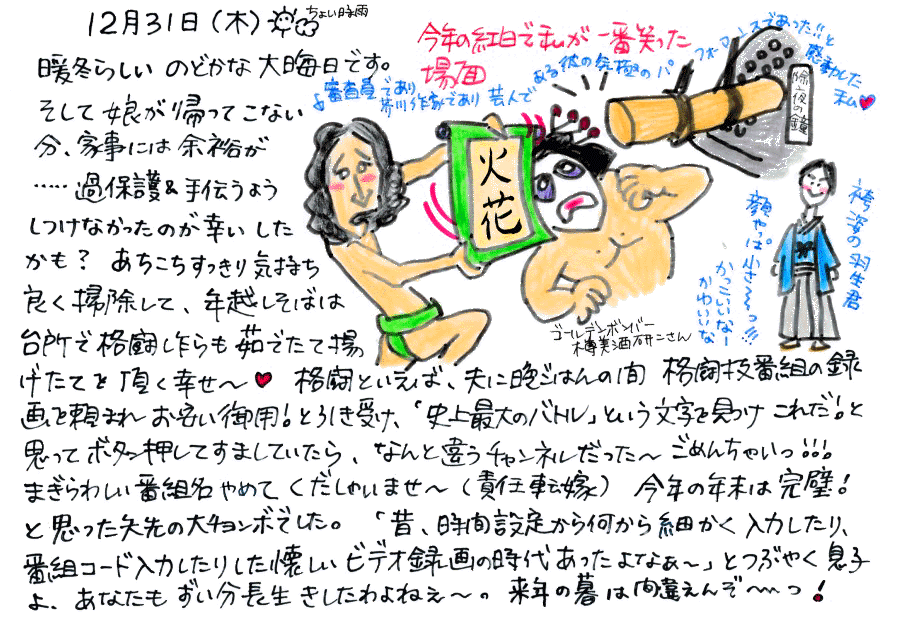 12月31日(木)
ちょい時雨
暖冬らしい のどかな大晦日です。
そして娘が帰ってこない
分、家事には余裕が
……過保護&手伝うよう
しつけなかったのが幸いした
かも? あちこちすっきり気持ち
良く掃除して、年越しそばは
台所で格闘し乍らも茹でたて揚
げたてを頂く幸せ~♥ 格闘といえば、夫に晩ごはんの間 格闘技番組の録
画を頼まれ お安い御用!と引き受け、「史上最大のバトル」という文字を見つけ これだ!と
思ってボタン押してすましていたら、なんと違うチャンネルだった~ ごめんちゃいっ!!!
まぎらわしい番組名やめてくだしゃいませ~(責任転嫁) 今年の年末は完璧!
と思った矢先の大チョンボでした。 「昔、時間設定から何から細かく入力したり、
番組コード入力したりした懐しいビデオ録画の時代あったよなぁ~」とつぶやく息子
よ、あなたもずい分長生きしたわよねぇ~。 来年の暮は間違えんぞ~っ!
今年の紅白で私が一番笑った
場面
審査員であり
芥川作家であり 芸人で
ある彼の究極のパ
フォーマンスであった!!と
感動した
私♥
火花
除夜の鐘
ゴールデンボンバー
樽美酒研二さん
袴姿の羽生君
顔やっぱ小さ~っ!!!
かっこいいなー
かわいいな